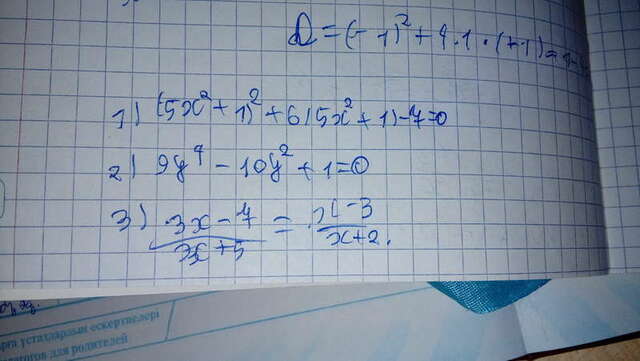 D = (-1)² + 4·1·(+1) =
1) (5x² + 1)² + 6(5x² + 1) - 7 = 0
2) 9y⁴ - 10y² + 1 = 0
3) (3x - 7)/(3x + 5) = (x - 3)/(x + 2).
ұстаздардың ескертпелері
для родителей